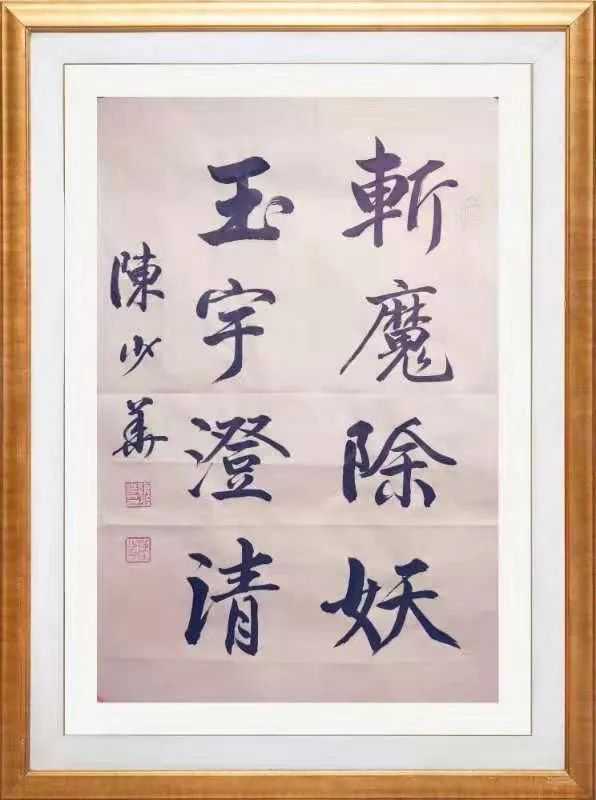 斬魔除妖
玉宇澄清
陳少華